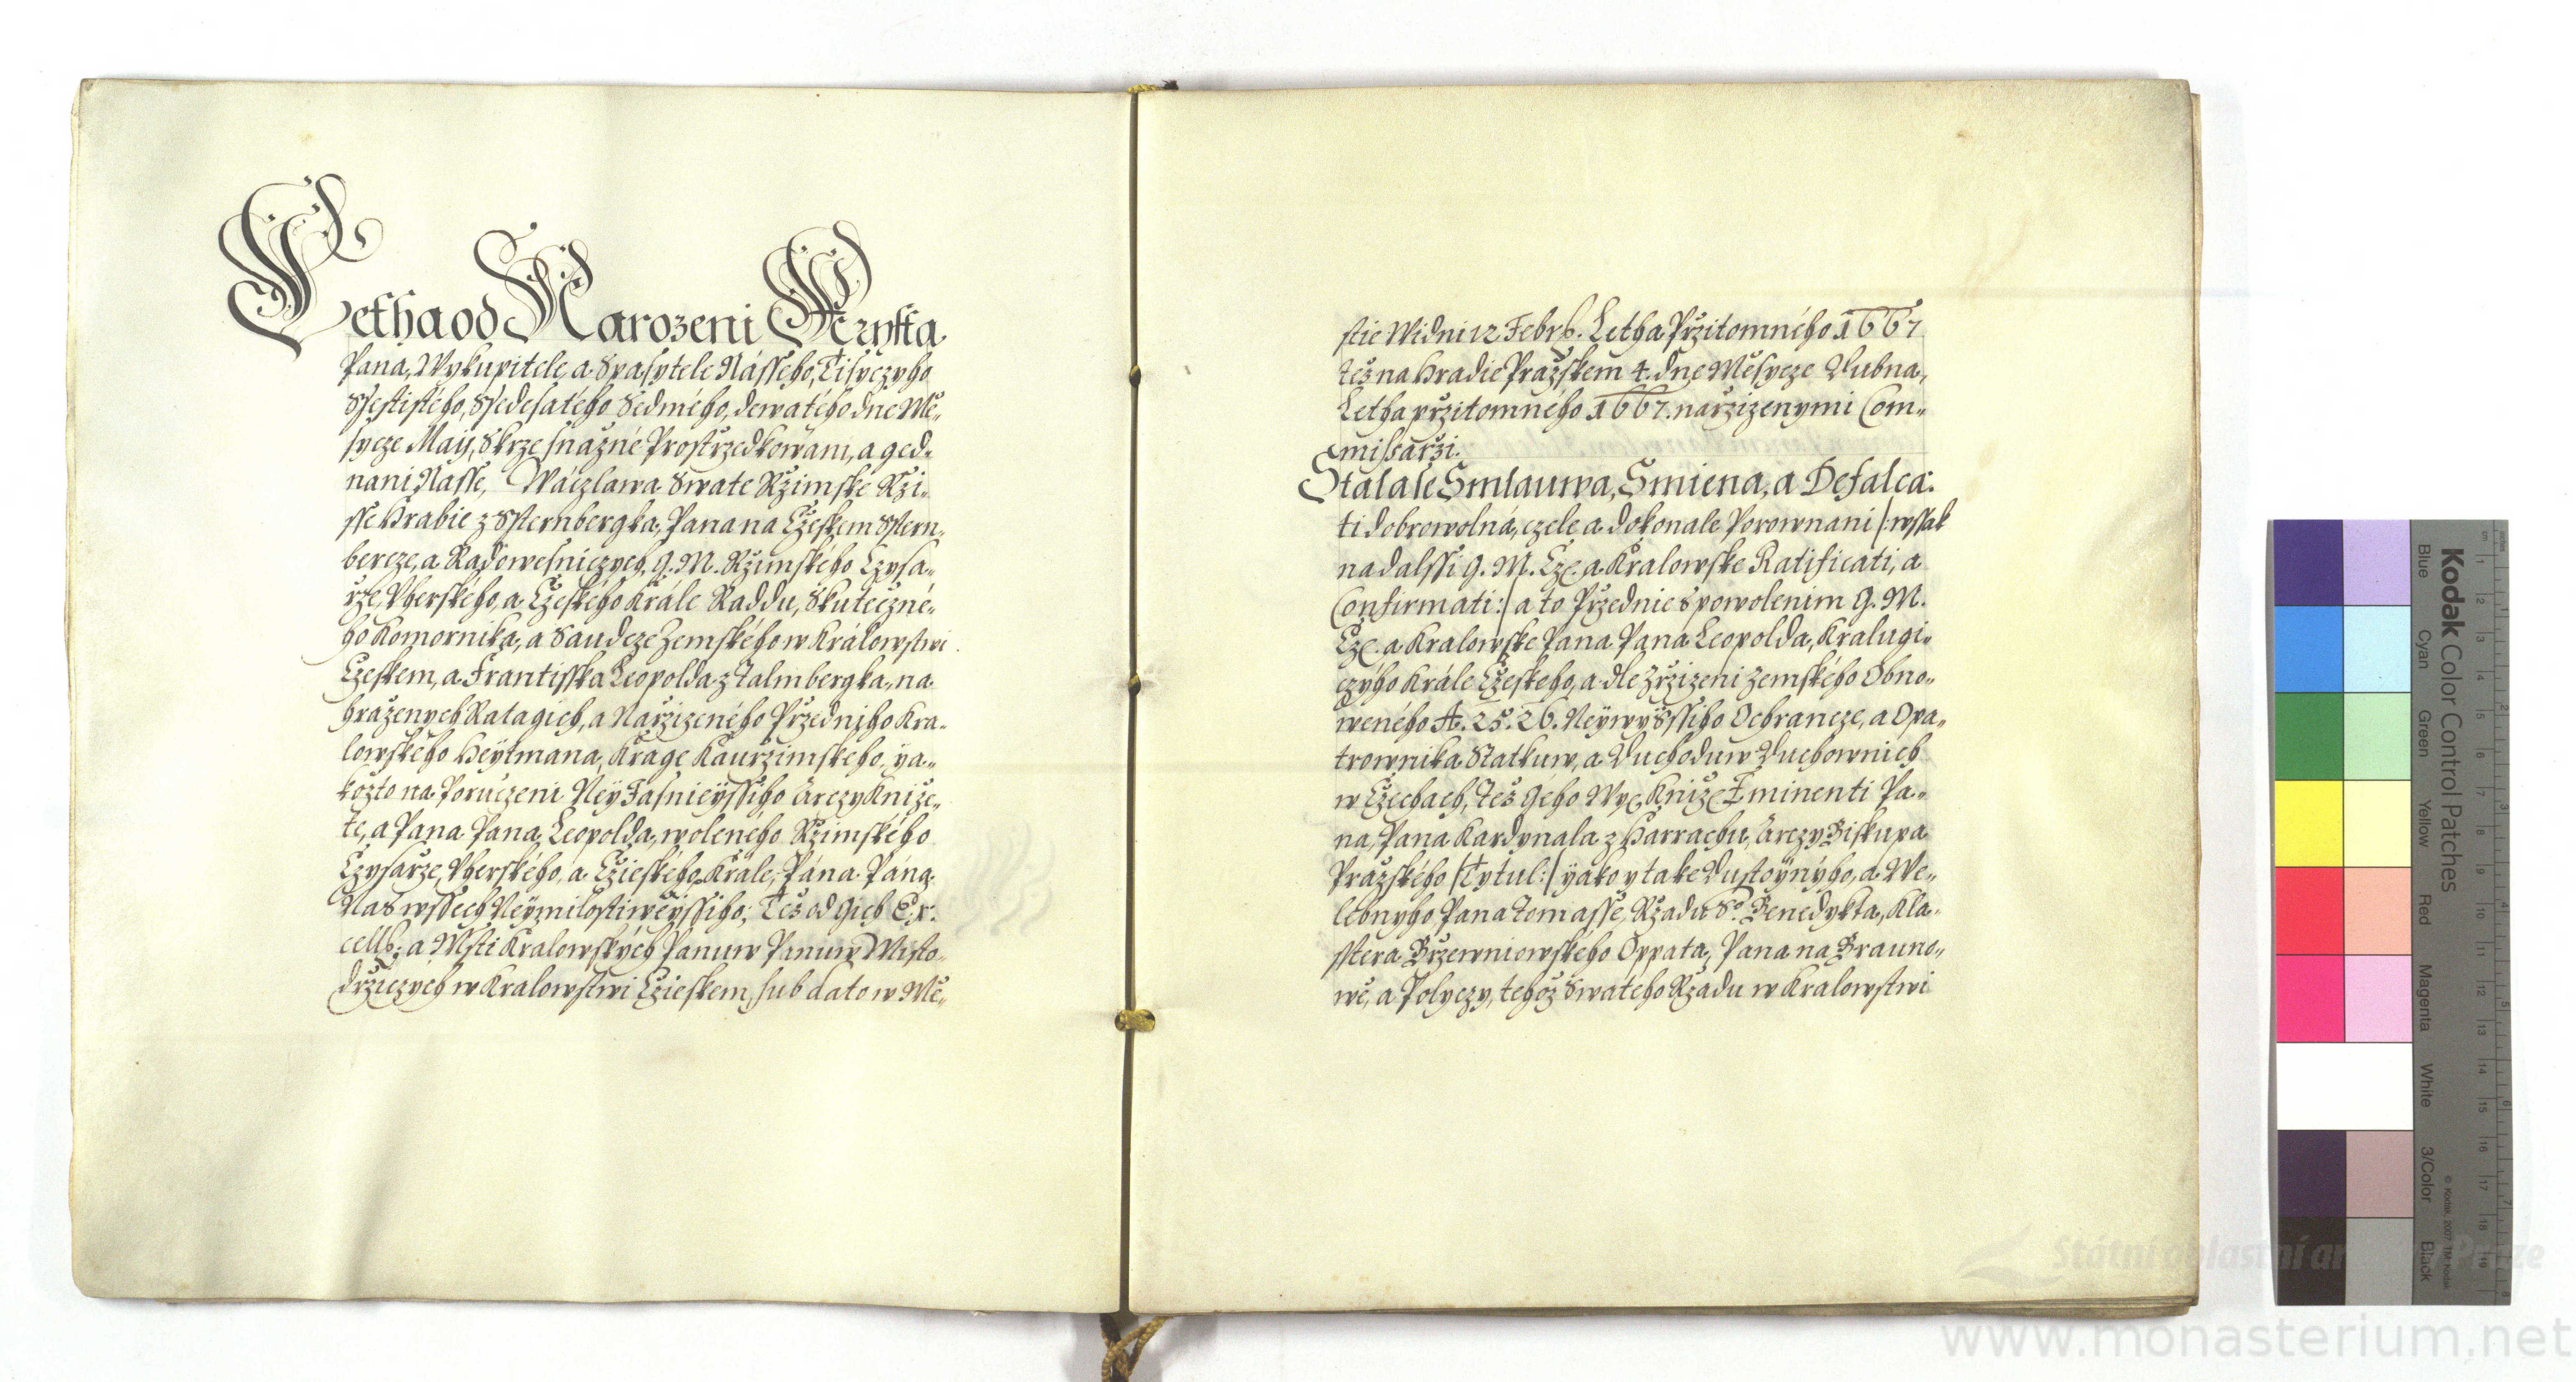 Letha od Narozeni Krysta
Pana, Wykupitele, a Spasytele Násseho, Tisyczyho
Ssestistého, Ssedesatého Sedmého, dewatého dne Mě„
sycze Maij, Skrze snažné Prostrzedkowani, a ged„
nani Nasse, Wáczlawa Swate Rzimske Rzi„
sse Hrabie z Ssternbergka, Pana na Czeskem Sstern„
bercze, a Radowesniczych, G. M. Rzimského Czysa„
rze, Vherského, a Czeského Krále Raddu, Skutečzné„
ho Komornika, a Saudcze Zemského w Králowstwi
Czeskem, a Frantisska Leopolda z Talmbergka, na
hraženych Ratagich, a Narzizeného Przedniho Kra„
lowského Heytmana, Kráge Kaurzimskeho, ya„
kožto na Poruczeni Ney Jasnieyssiho Arczy Kniže„
te, a Pana Pana Leopolda, woleného Rzimského
Czysarze, Vherského, a Czieského Krále, Pána Pána
Nas wssech Neymilostiweyssiho; Též od Gich Ex„
cell: a Msti Kralowských Panuw Panuw Misto„
držiczých w Kralowstwi Czieskem, sub dato w Mě„
stie Widni 12 Febr: Letha Przitomného 1667
též na Hradie Pražskem 4. dne Měsycze Dubna,
Letha przitomného 1667. narzizenymi Com„
missarzi.
Stala se Smlauwa, Smiena, a Defalca:
ti dobrowolná, czele a dokonale Porownani /: wssak
na dalssi G. M. Cze. a Kralowske Ratificati, a
Confirmati :/ a to Przednie s powolenim G. M.
Cze. a Kralowske Pana Pana Leopolda, Kralugi„
czýho Krále Czeského, a dle Zrzizeni Zemského Obno„
weného A. 25. 26. Neywyšssiho Ochrancze, a Opa„
trownika Statkuw, a Duchoduw Duchownich
w Czechach, též Geho Wyc. Kniže Eminenti Pa„
na, Pana Kardynala z Harrachu, Arczy Biskupa
Pražského /: Tytul :/ yako y take Dustoynýho, a We„
lebnyho Pana Tomasse, Rzadu S. Benedykta, Kla„
sstera Brzewniowského Oppata, Pana na Brauno„
wě, a Polyczy, tehož Swatého Rzadu w Kralowstwi
Kodak Color Control Patches
Blue Cyan Green Yellow Red Magenta White 3/Color Black
© Kodak, 2007 TM Kodak
www.monasterium.net